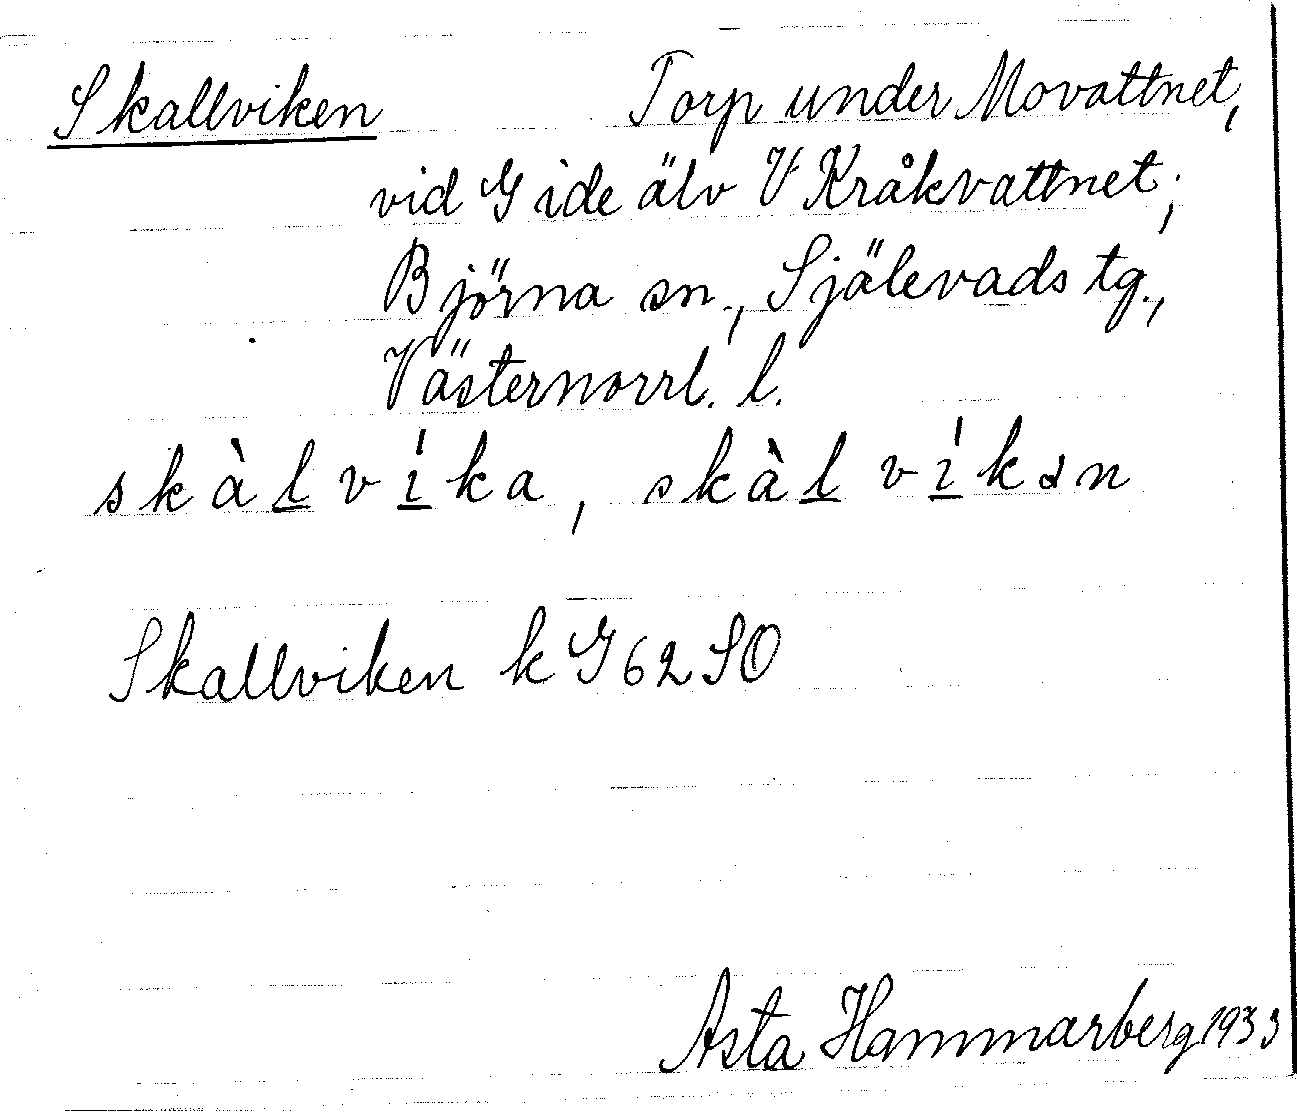 Skallviken Torp under Movattnet,
vid Gide älv V Kråkvattnet;
Björna sn., Själevads tg.,
Västernorrl. l.
skàlvíka, skàlvíkən
Skallviken k G62SO
Asta Hammarberg 1933